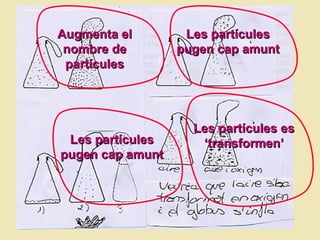 Augmenta el
nombre de
partícules
Les partícules
pugen cap amunt
Les partícules
pugen cap amunt
Les partícules es
‘transformen’
aire
aire i oxigen
1)
2)
3)
que l'aire s'ha
transformat en oxigen
i el globus s'infla